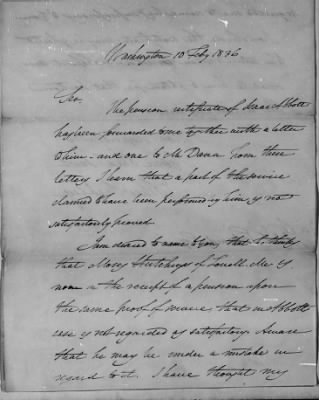 Washington 10 Feby 1836
Sir.
The pension certificate of Isaac Abbott
has been forwarded to me together with a letter
to him - and one to Mr Dana from these
letters I learn that a part of the service
claimed to have been performed by him is not
satisfactorily proved
I am desired to name to you, that he thinks
that Moses Hutchins of Lovell. Me is
now in the receipt of a pension upon
the same proof of service that in Abbotts
case is not regarded as satisfactory. Aware
that he may be under a mistake in
regard to it. I have thought my